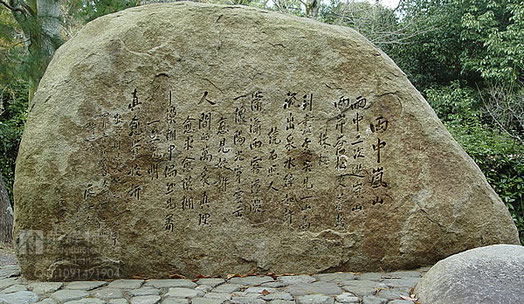 雨中嵐山
雨中二次遊嵐山
兩岸蒼松夾着幾
株櫻
到盡處突見一山高
流出泉水綠如許
繞石照人
瀟瀟雨霧濛濃
一線陽光穿雲出
愈見姣妍
人間的萬象真理
愈求愈模糊
模糊中偶然見着
一點光明
真愈覺姣妍
1091491904